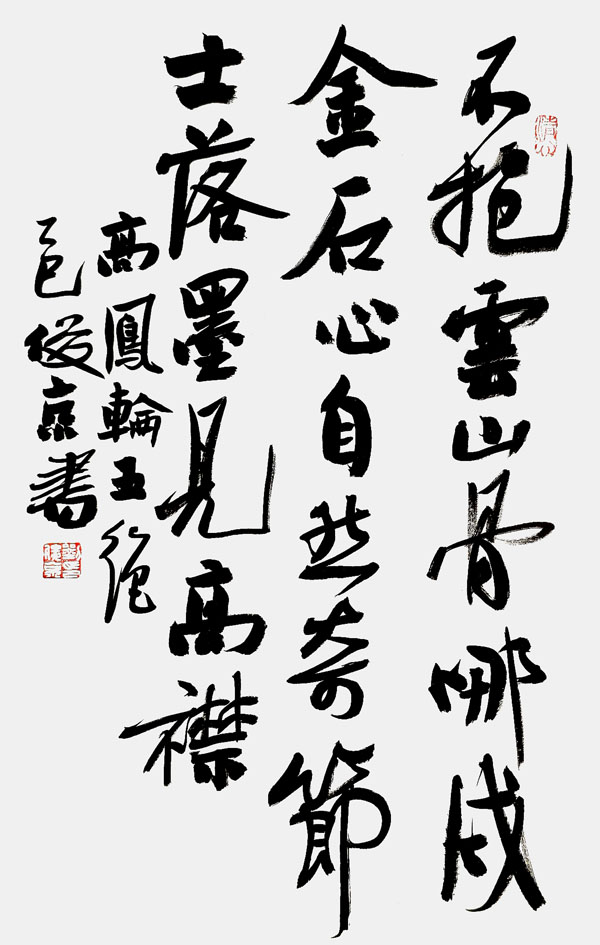 不抱雲山骨哪成
金石心自然奇節
士落墨見高襟
高鳳輪五絕
乙巳俊京書